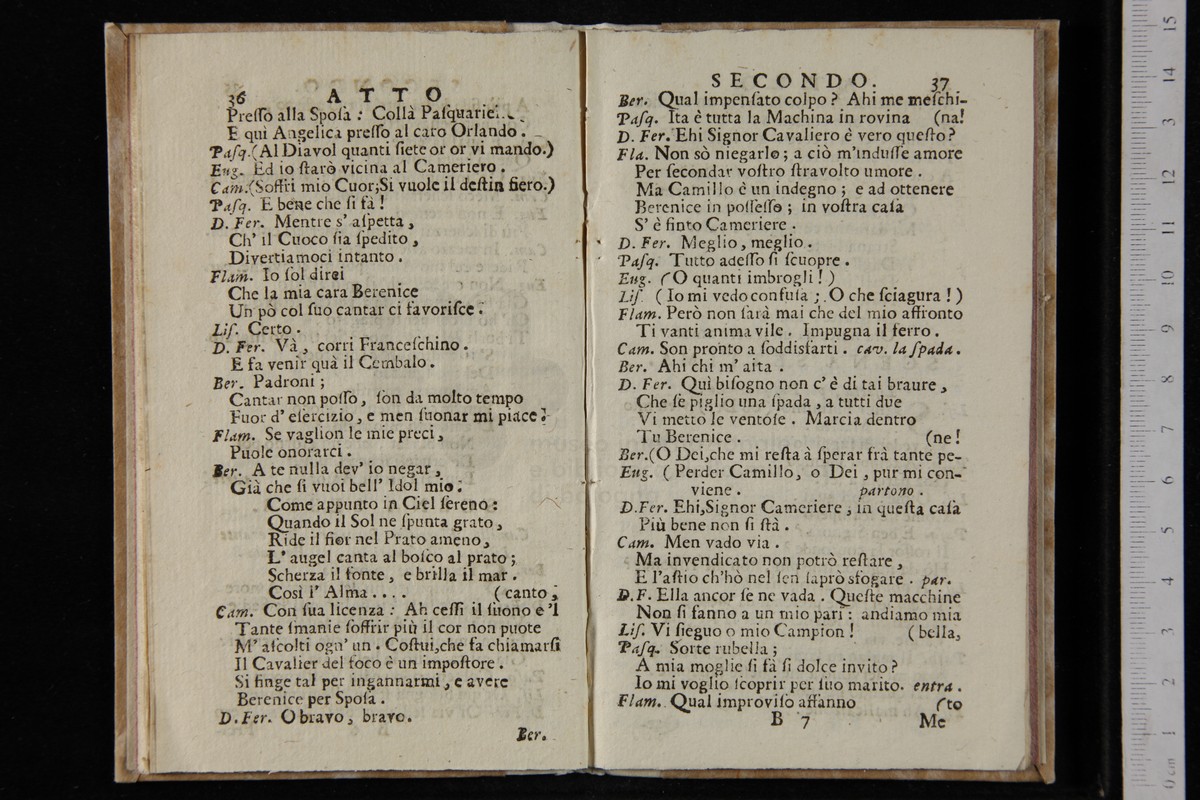 36 ATTO
Preſſo alla Spoſa : Collà Paſquariel..
E quì Angelica preſſo al caro Orlando .
Paſq.(Al Diavol quanti ſiete or or vi mando.)
Eug. Ed io ſtarò vicina al Cameriero .
Cam.(Soffri mio Cuor;Si vuole il deſtin fiero.)
Paſq. E bene che ſi fà !
D. Fer. Mentre s' aſpetta ,
Ch' il Cuoco ſia ſpedito ,
Divertiamoci intanto .
Flam. Io ſol direi
Che la mia cara Berenice
Un pò col ſuo cantar ci favoriſce .
Liſ. Certo .
D. Fer. Và , corri Franceſchino .
E fa venir quà il Cembalo .
Ber. Padroni ;
Cantar non poſſo , ſon da molto tempo
Fuor d' eſercizio , e men ſuonar mi piace .
Flam. Se vaglion le mie preci ,
Puole onorarci .
Ber. A te nulla dev' io negar ,
Già che ſi vuoi bell' Idol mio .
Come appunto in Ciel ſereno :
Quando il Sol ne ſpunta grato ,
Ride il fior nel Prato ameno ,
L' augel canta al boſco al prato ;
Scherza il fonte , e brilla il mar .
Così l' Alma . . . . ( canto ,
Cam. Con ſua licenza : Ah ceſſi il ſuono e 'l
Tante ſmanie ſoffrir più il cor non puote
M' aſcolti ogn' un . Coſtui,che fa chiamarſi
Il Cavalier del foco è un impoſtore .
Si finge tal per ingannarmi , e avere
Berenice per Spoſa .
D. Fer. O bravo , bravo .
Ber.
SECONDO. 37
Ber. Qual impenſato colpo ? Ahi me meſchi-
Paſq. Ita è tutta la Machina in rovina (na!
D. Fer. Ehi Signor Cavaliero è vero queſto ?
Fla. Non sò niegarlo ; a ciò m'induſſe amore
Per ſecondar voſtro ſtravolto umore .
Ma Camillo è un indegno ; e ad ottenere
Berenice in poſſeſſo ; in voſtra caſa
S' è finto Cameriere .
D. Fer. Meglio , meglio .
Paſq. Tutto adeſſo ſi ſcuopre .
Eug. (O quanti imbrogli ! )
Liſ. ( Io mi vedo confuſa ; O che ſciagura ! )
Flam. Però non ſarà mai che del mio affronto
Ti vanti anima vile . Impugna il ferro .
Cam. Son pronto a ſoddisfarti . cav. la ſpada .
Ber. Ahi chi m' aita .
D. Fer. Quì biſogno non c' è di tai braure ,
Che ſe piglio una ſpada , a tutti due
Vi metto le ventoſe . Marcia dentro
Tu Berenice . (ne!
Ber.(O Dei,che mi reſta à ſperar frà tante pe-
Eug. ( Perder Camillo , o Dei , pur mi con-
viene . partono .
D.Fer. Ehi,Signor Cameriere , in queſta caſa
Più bene non ſi ſtà .
Cam. Men vado via .
Ma invendicato non potrò reſtare ,
E l'aſtio ch'hò nel ſen ſaprò sfogare . par.
D.F. Ella ancor ſe ne vada . Queſte macchine
Non ſi fanno a un mio pari : andiamo mia
Liſ. Vi ſieguo o mio Campion ! ( bella,
Paſq. Sorte rubella ;
A mia moglie ſi fà ſi dolce invito ?
Io mi voglio ſcoprir per ſuo marito. entra .
Flam. Qual improviſo affanno (to
B 7 Me